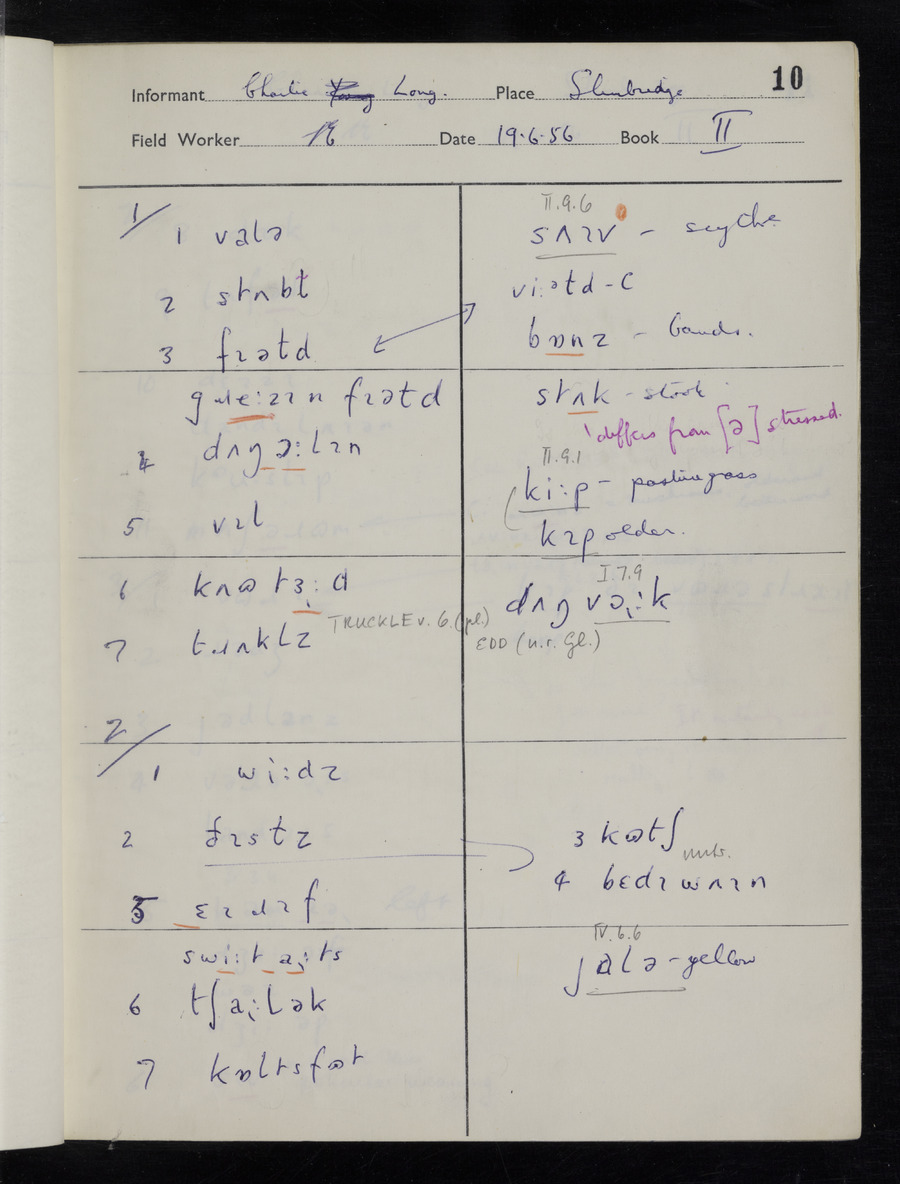 10
Informant Charlie Long. Place Slimbridge
Field Worker Date 19.6.56 Book II
1/
1 valə
2 stʌbt
3 fɹətd
gɹe:zɪn fɹətd
4 dʌŋ ə:lɪn
5 vɪl
6 kʌɷtɜ:d
7 tɹʌklz
TRUCKLE v. 6. (pl.)
EDD (n.r. Gl.)
2/
1 wi:dz
2
5
swi:t a:ts
6 tʃa:lək
7 kɒltsfɷt
II.9.6
sʌɪv - scythe
vi:ətd - C
bɒnz - bands.
stʌk - stook
differs from [ə] stressed.
II.9.1
ki:p - pasturegrass
kɪp older.
I.7.9
dʌŋ və:k
3 kɷtʃ
4 bɛdɪwʌɪn
IV.6.6
jalə - yellow